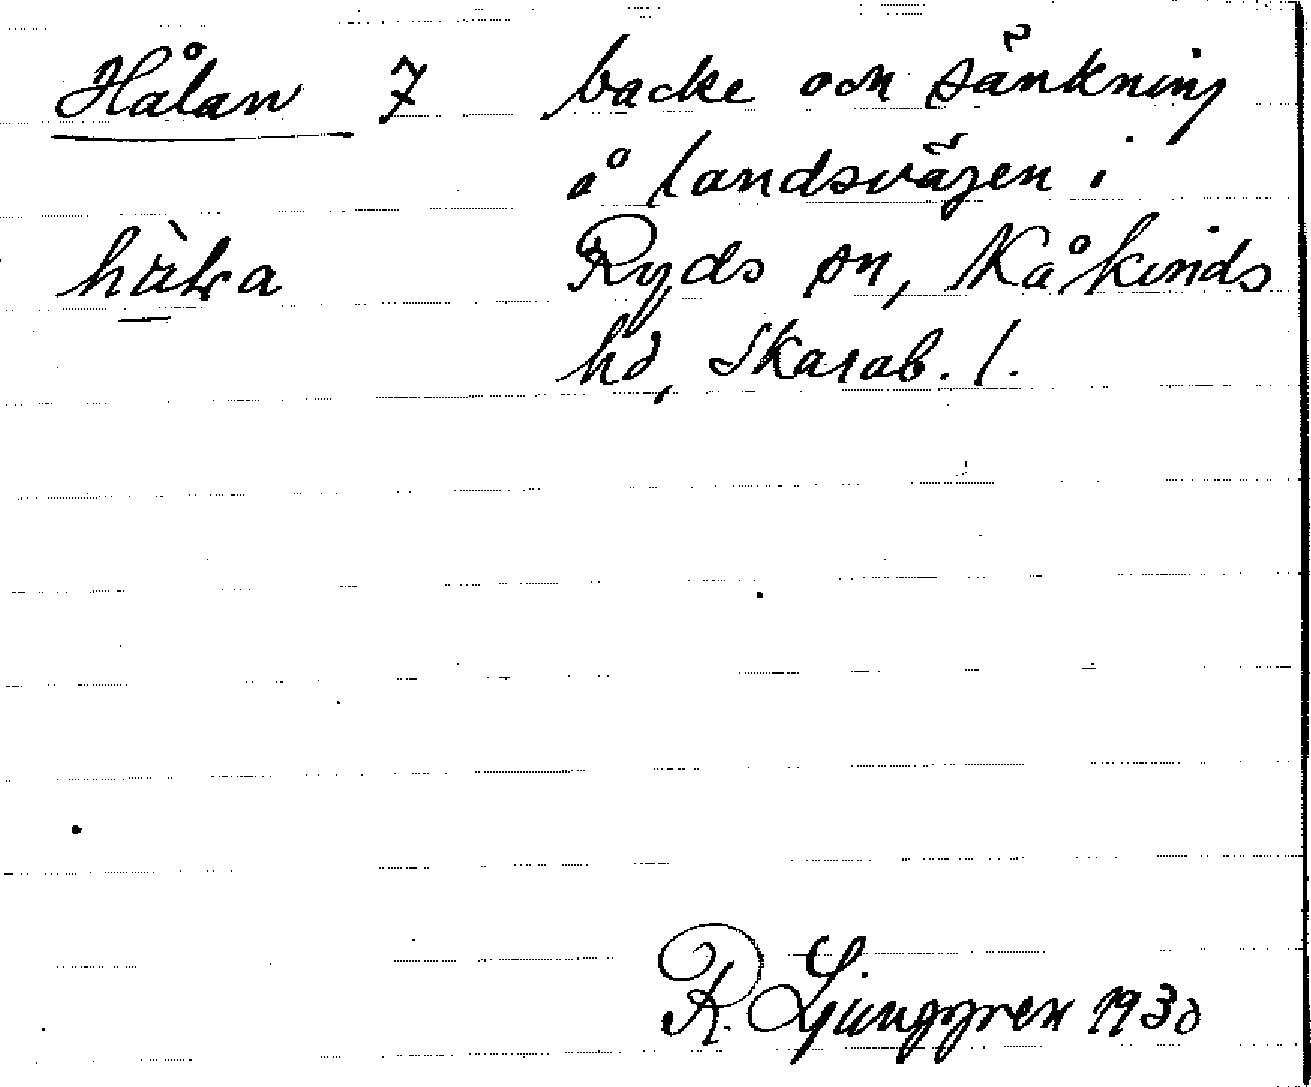 Hålan 7 backe och sänkning
å landsvägen i
Ryds sn, Kåkinds
hd, Skarab. l.
R. Ljunggren 1930